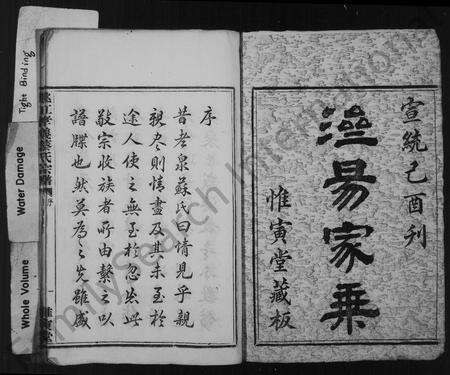 宣統己酉刊
澄昜家乗
惟寅堂藏板
序
昔老泉蘇氏曰情見乎親
親盡則情盡及其未至於
途人使之無至於忽忘此
敬宗收族者所由繫之以
譜牒也然莫為之先雖盛
Tight Binding
Water Damage
Whole Volume
FamilySearch International